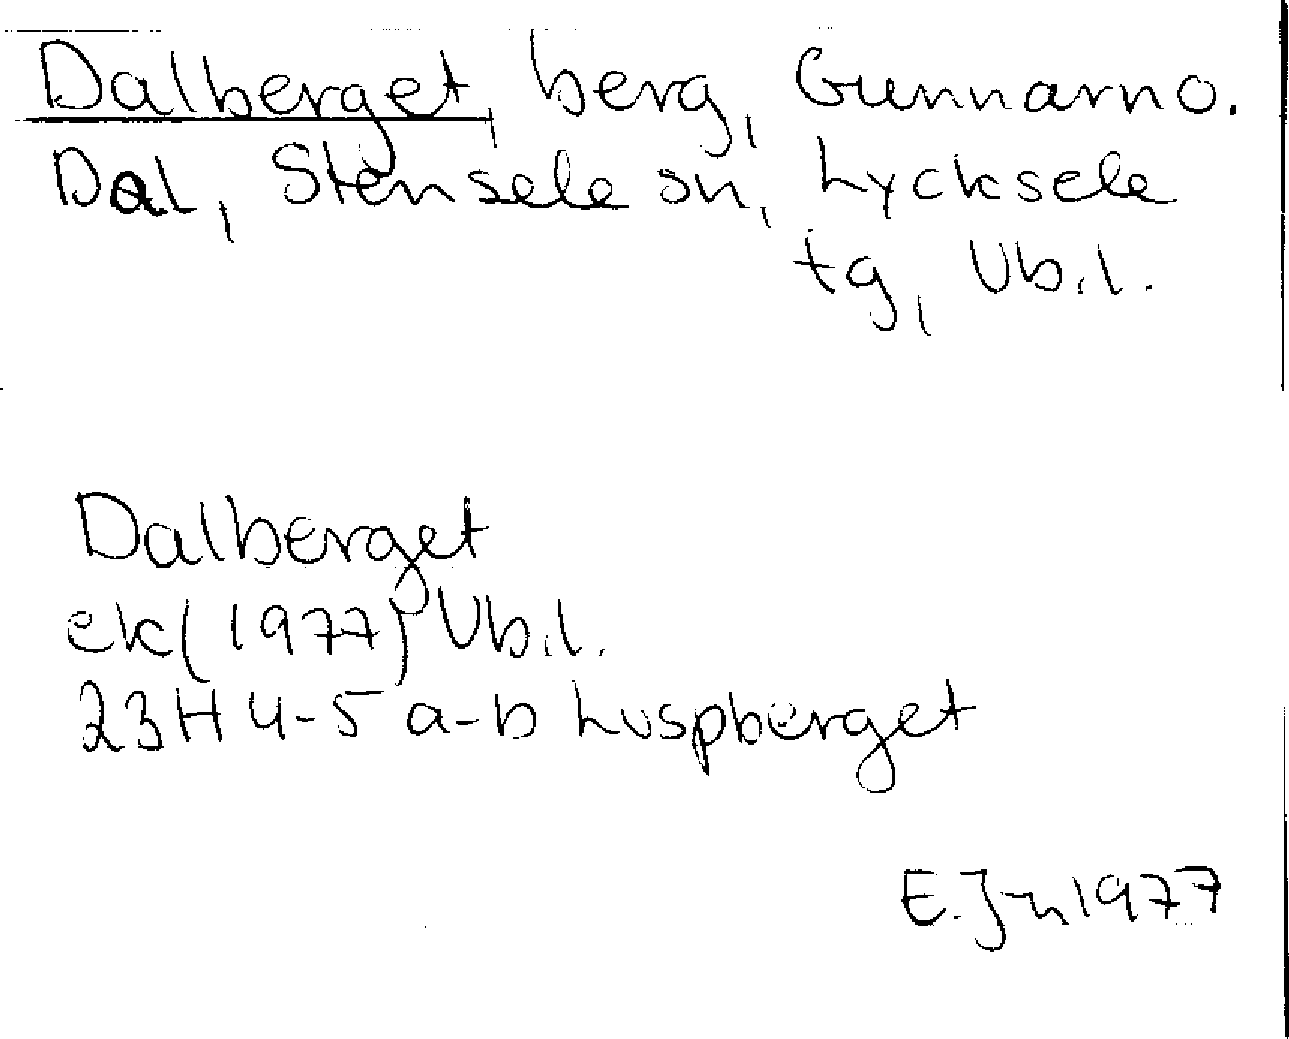 Dalberget, berg, Gunnarno.
Dal, Stensele sn, Lycksele
tg, Vb.l.
Dalberget
ek(1977) Vb.l.
23H 4-5 a-b Luspberget
E.Jn 1977